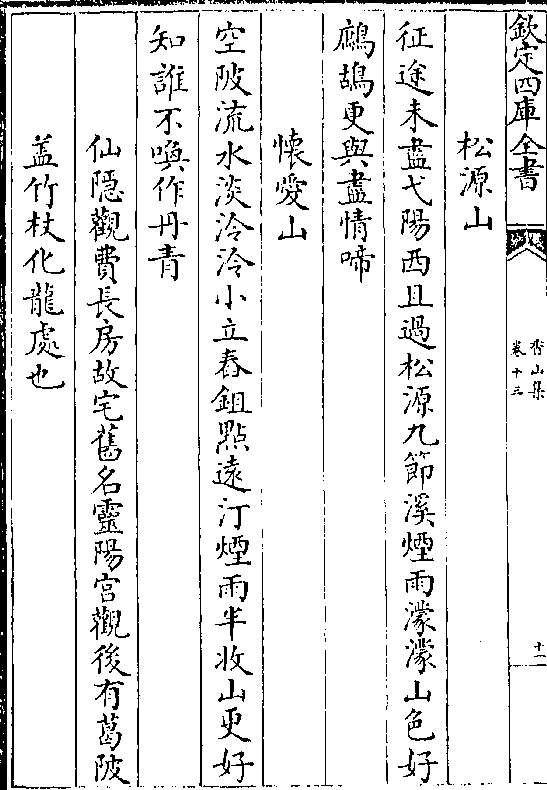 欽定四庫全書
香山集
卷十三
十一
松源山
征途未盡弋陽西且過松源九節溪煙雨濛濛山色好
鷓鴣更與盡情啼
懷愛山
空陂流水淡泠泠小立舂鉏點遠汀煙雨半收山更好
知誰不喚作丹青
仙隱觀費長房故宅舊名靈陽宫觀後有葛陂
盖竹杖化龍處也